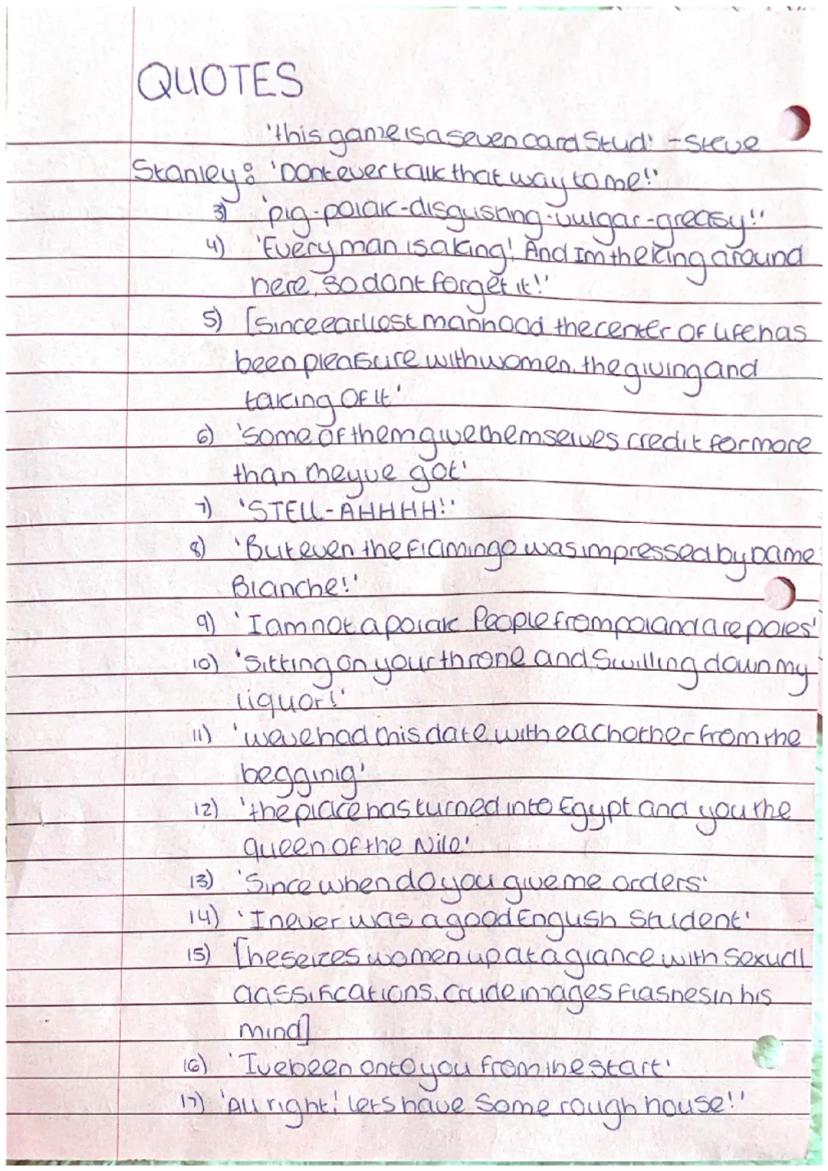 QUOTES
'this game is a seven card stud' - Steve
Stanley: 'Dont ever talk that way to me!'
3) 'pig-polak-disgusting-vulgar-greasy!'
4) 'Every man is a king! And Im the king around
here, so dont forget it!'
5) [since earliest manhood the center of life has
been pleasure with women, the giving and
taking of it'
6) 'Some of them give themselves credit for more
than theyve got'
7) 'STELL-AHHHH!'
8) 'But even the Flamingo was impressed by Dame
Blanche!'
9) 'I am not a polak. People from poland are poles'
10) 'Sitting on your throne and Swilling down my
liquor!'
11) 'weve had this date with eachother from the
beggining'
12) 'the place has turned into Egypt and you the
queen of the Nile'
13) 'Since when do you give me orders'
14) 'I never was a good English Student'
15) [he seizes women up at a glance with sexual
classifications, crude images flashes in his
mind]
16) 'Ive been onto you from the start'
17) 'All right! lets have some rough house!'